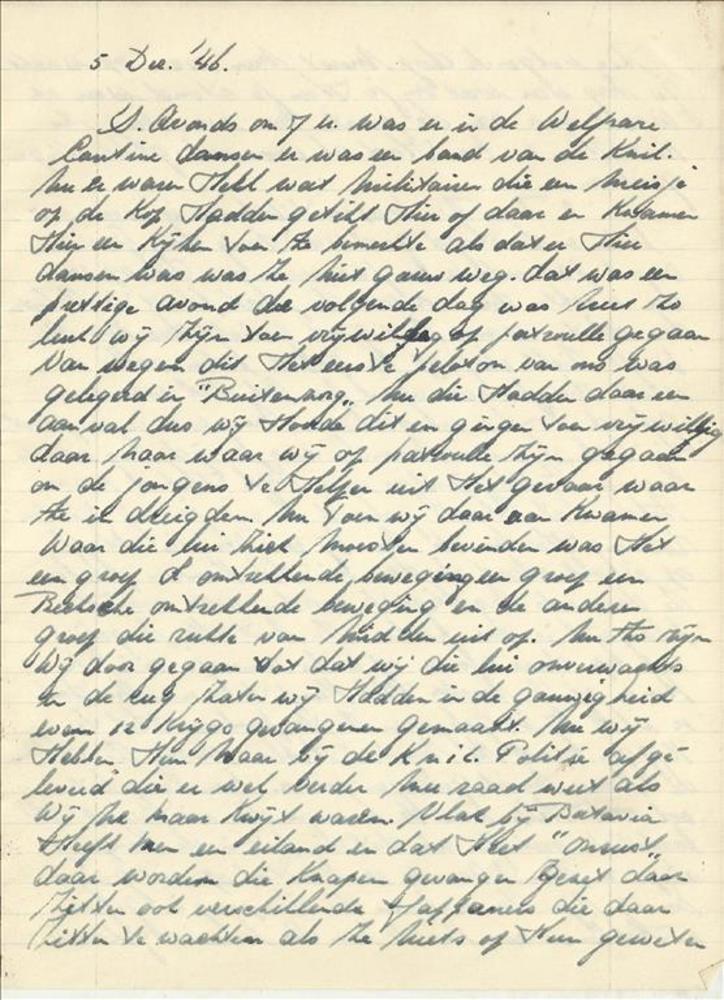 5 Dec. '46.
S. Avonds om 7 u. was er in de Welfare
Cantine dansen er was een band van de Knil.
nu Er waren Hebl wat militairen die een meisje
op de Kop Hadden getikt Hier of daar en Kwamen
Hier een Kijken toen ze bemerkte als dat er Hier
dansen was was ze niet gauw weg. dat was een
prettige avond de volgende dag was niet zo
leuk wij zijn toen vrijwillig op patroulle gegaan
van wegen dit Het eerste peloton van ons was
gelegerd in "Buitenzorg" nu die Hadden daar een
aanval dus wij Hoorde dit en gingen toen vrijwillig
daar naar waar wij op patroulle zijn gegaan
om de jongens te Helpen uit Het gevaar waar
ze in dreigden. nu toen wij daar aan Kwamen
Waar die lui zich moesten bevinden was Het
een groep L omtrekkende beweging en groep een
Rechtsche omtrekkende beweging en de andere
groep die rukte van midden uit op. nu zho zijn
Wij door gegaan tot dat wij die lui onverwachts
in de rug zaten wij Hadden in de gauwigheid
even 12 Krijgs gevangenen gemaakt. nu wij
Hebben Hun maar bij de Knil. Politie afge
leverd die er wel verder mee raad weet als
Wij ze maar Kwijt waren. Vlak bij Batavia
Heeft men een eiland en dat Heet "Onrust"
daar worden die Knapen gevangen gezet daar
zitten ook verschillende Jappaners die daar
zitten te wachten als ze niets op Hun geweten